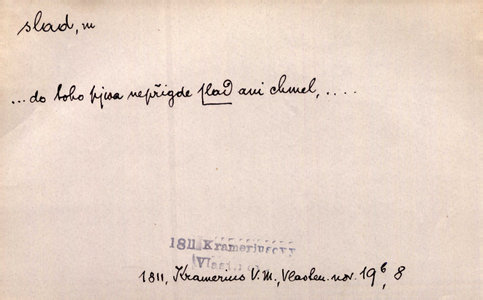 slad, m
...do toho pjwa nepřigde slad ani chmel, ....
1811 Krameriusovy
1811, Kramerius V.M., Vlasten. nov. 19⁶, 8